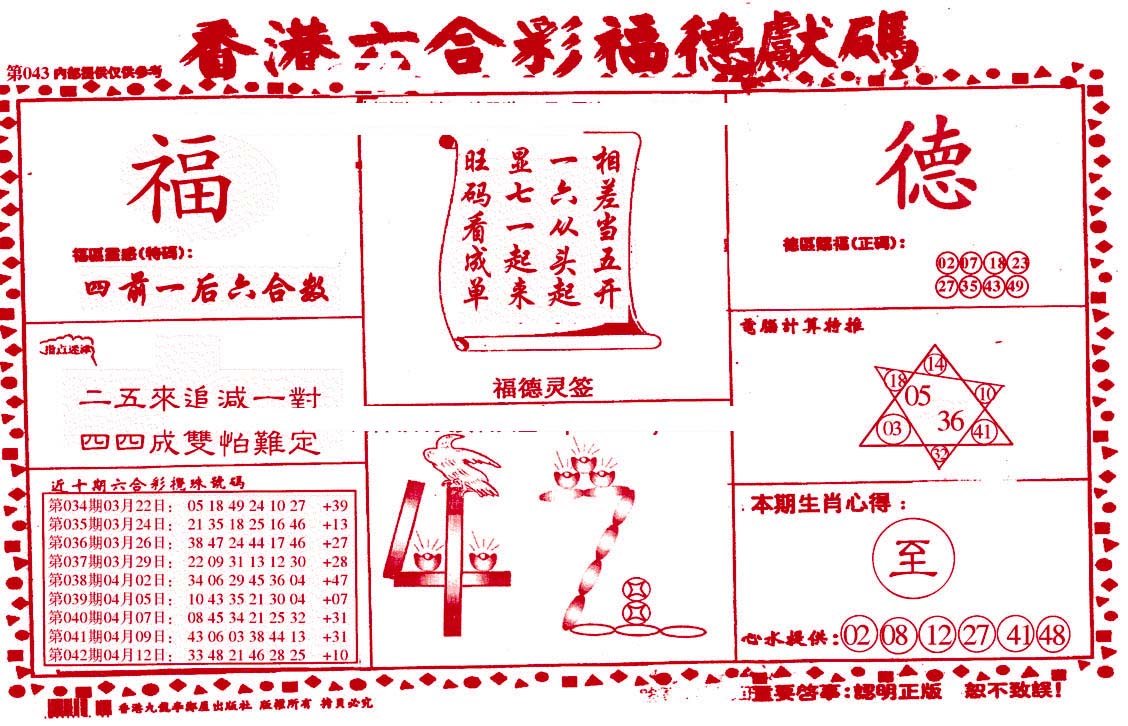 香港六合彩福德獻碼
第043内部提供仅供参考
福
福區靈感(特碼):
四前一后六合数
指点迷津
二五來追減一對
四四成雙怕難定
近十期六合彩攪珠號碼
第034期03月22日: 05 18 49 24 10 27 +39
第035期03月24日: 21 35 18 25 16 46 +13
第036期03月26日: 38 47 24 44 17 46 +27
第037期03月29日: 22 09 31 13 12 30 +28
第038期04月02日: 34 06 29 45 36 04 +47
第039期04月05日: 10 43 35 21 30 04 +07
第040期04月07日: 08 45 34 21 25 32 +31
第041期04月09日: 43 06 03 38 44 13 +31
第042期04月12日: 33 48 21 46 28 25 +10
相差当五开
一六从头起
显七一起来
旺码看成单
福德灵签
42
德
德區賜福(正碼):
02 07 18 23
27 35 43 49
電腦計算特推
14
18
05
10
03
36
41
32
本期生肖心得:
至
心水提供:02 08 12 27 41 48
香港九龍 出版社 版權所有 拷貝必究
重要啓事:認明正版 恕不致誤!